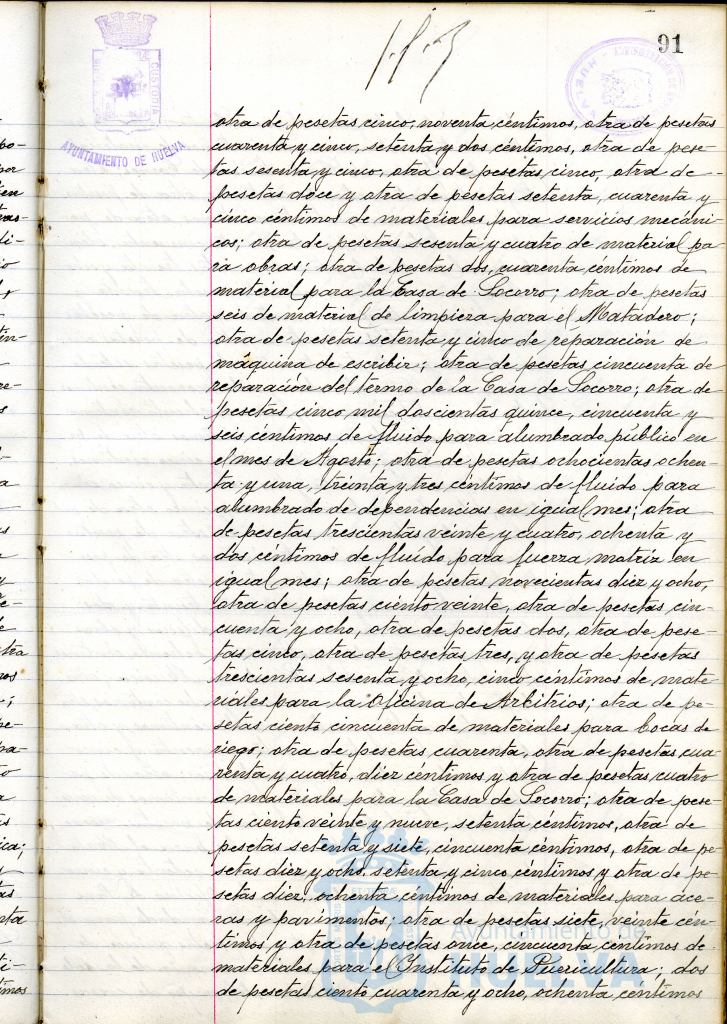 91
AYUNTAMIENTO DE HUELVA
otra de pesetas cinco, noventa céntimos, otra de pesetas
cuarenta y cinco, setenta y dos céntimos, otra de pese-
tas sesenta y cinco, otra de pesetas cinco, otra de
pesetas doce y otra de pesetas setenta, cuarenta y
cinco céntimos de materiales para servicios mecáni-
cos; otra de pesetas sesenta y cuatro de material pa
ra obras; otra de pesetas dos, cuarenta céntimos de
material para la Casa de Socorro; otra de pesetas
seis de material de limpieza para el Matadero;
otra de pesetas setenta y cinco de reparación de
máquina de escribir; otra de pesetas cincuenta de
reparación del termo de la Casa de Socorro; otra de
pesetas cinco mil doscientas quince, cincuenta y
seis céntimos de fluido para alumbrado público en
el mes de Agosto; otra de pesetas ochocientas ochen-
ta y una, treinta y tres céntimos de fluido para
alumbrado de dependencias en igual mes; otra
de pesetas trescientas veinte y cuatro, ochenta y
dos céntimos de fluído para fuerza matriz en
igual mes; otra de pesetas novecientas diez y ocho,
otra de pesetas ciento veinte, otra de pesetas cin-
cuenta y ocho, otra de pesetas dos, otra de pese-
tas cinco, otra de pesetas tres, y otra de pesetas
trescientas sesenta y ocho, cinco céntimos de mate-
riales para la Oficina de Arbitrios; otra de pe-
setas ciento cincuenta de materiales para bocas de
riego; otra de pesetas cuarenta, otra de pesetas cua-
renta y cuatro, diez céntimos y otra de pesetas cuatro
de materiales para la Casa de Socorro; otra de pese-
tas ciento veinte y nueve, setenta céntimos, otra de
pesetas setenta y siete, cincuenta céntimos, otra de pe-
setas diez y ocho, setenta y cinco céntimos y otra de pe-
setas diez, ochenta céntimos de materiales para ace-
ras y pavimentos; otra de pesetas siete, veinte cén-
timos y otra de pesetas once, cincuenta céntimos de
materiales para el Instituto de Puericultura; dos
de pesetas ciento cuarenta y ocho, ochenta céntimos
Ayuntamiento de
HUELVA